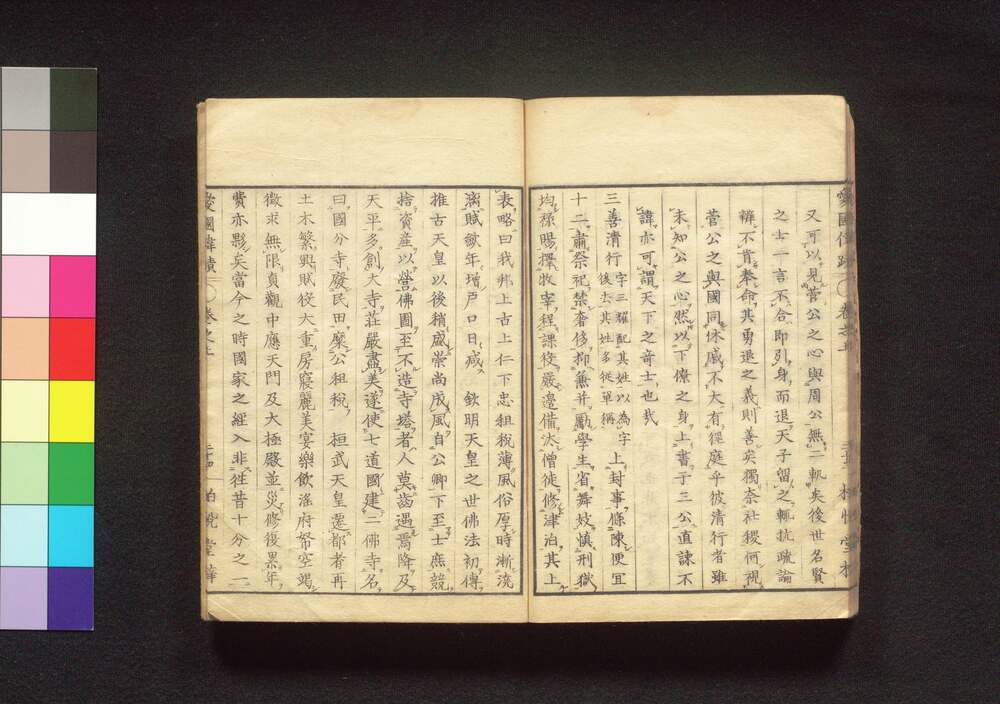 又可以見菅公之心與周公無二軌矣後世名賢
之士一言不合卽引身而退天子留之輒抗疏論
辯不肯奉命其勇退之義則善矣獨奈社稷何視
菅公之與國同休戚不大有徑庭乎彼清行者雖
未知公之心然以下僚之身上書于三公直諫不
諱亦可謂天下之奇士也哉
三善清行
字三耀配其姓以為字
後去其姓多從單稱
上封事條陳便宜
十二肅祭祀禁奢侈抑兼并勵學生省舞妓慎刑獄
均祿賜擇牧宰程課役嚴邊備汰僧徒修津治其上
表略曰我邦上古上仁下忠租稅薄風俗厚時漸澆
漓賦歛年增戶口日減 欽明天皇之世佛法初傳
推古天皇以後稍盛崇尚成風自公卿下至士庶競
捨資產以營佛圖至不造寺塔者人莫齒遇焉降及
天平多創大寺莊嚴盡美遂使七道國建二佛寺名
曰國分寺廢民田糜公租稅 桓武天皇遷都者再
土木繁興賦役大重房寢麗美宴樂飲滛府帑空竭
徵求無限貞觀中應天門及大極殿並災修復累年
費亦夥矣當今之時國家之經入非徃昔十分之一
愛國偉績 卷之上